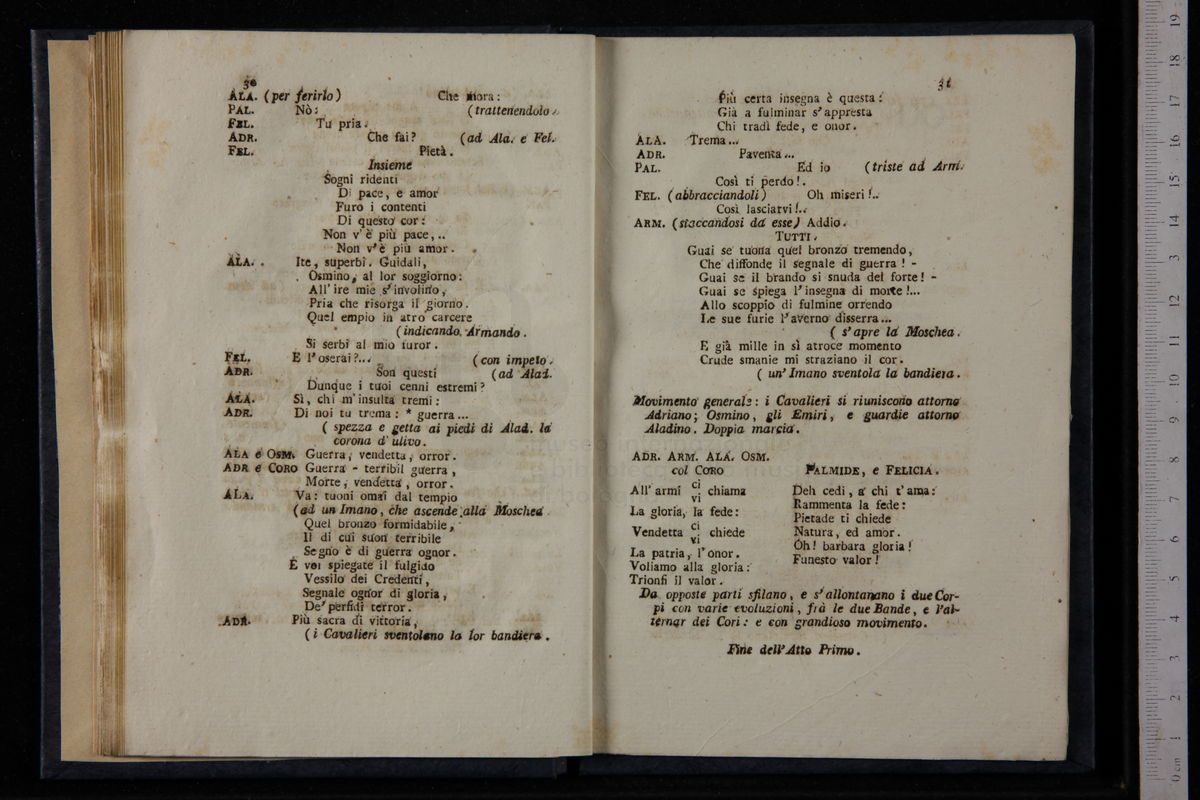 30
ALA. (per ferirlo) Che mora:
PAL. Nò: (trattenendolo.
FEL. Tu pria.
ADR. Che fai? (ad Ala. e Fel.
FEL. Pietà.
Insieme
Sogni ridenti
Di pace, e amor
Furo i contenti
Di questo cor:
Non v'è più pace,..
Non v'è più amor.
ALA. Ite, superbi. Guidali,
Osmino, al lor soggiorno:
All'ire mie s'involino,
Pria che risorga il giorno.
Quel empio in atro carcere
(indicando Armando.
Si serbi al mio furor.
FEL. E l'oserai?... (con impeto.
ADR. Son questi (ad Alad.
Dunque i tuoi cenni estremi?
ALA. Sì, chi m'insulta tremi:
ADR. Di noi tu trema: * guerra...
( spezza e getta ai piedi di Alad. la
corona d'ulivo.
ALA e OSM. Guerra, vendetta, orror.
ADR e CORO Guerra - terribil guerra,
Morte, vendetta, orror.
ALA. Va: tuoni omai dal tempio
(ad un Imano, che ascende alla Moschea.
Quel bronzo formidabile,
Il di cui suon terribile
Segno è di guerra ognor.
E voi spiegate il fulgido
Vessilo dei Credenti,
Segnale ognor di gloria,
De' perfidi terror.
ADR. Più sacra di vittoria,
(i Cavalieri sventolano la lor bandiera.
31
Più certa insegna è questa:
Già a fulminar s'appresta
Chi tradì fede, e onor.
ALA. Trema...
ADR. Paventa...
PAL. Ed io (triste ad Arm.
Così ti perdo!.
FEL. (abbracciandoli) Oh miseri!..
Così lasciarvi!..
ARM. (staccandosi da esse) Addio.
TUTTI.
Guai se tuona quel bronzo tremendo,
Che diffonde il segnale di guerra! -
Guai se il brando si snuda del forte! -
Guai se spiega l'insegna di morte!...
Allo scoppio di fulmine orrendo
Le sue furie l'averno disserra...
( s'apre la Moschea.
E già mille in sì atroce momento
Crude smanie mi straziano il cor.
( un'Imano sventola la bandiera.
Movimento generale: i Cavalieri si riuniscono attorno
Adriano; Osmino, gli Emiri, e guardie attorno
Aladino. Doppia marcia.
ADR. ARM. ALA. OSM.
col CORO
All'armi ci vi chiama
La gloria, la fede:
Vendetta ci vi chiede
La patria, l'onor.
Voliamo alla gloria:
Trionfi il valor.
PALMIDE, e FELICIA.
Deh cedi, a chi t'ama:
Rammenta la fede:
Pietade ti chiede
Natura, ed amor.
Oh! barbara gloria!
Funesto valor!
Da opposte parti sfilano, e s'allontanano i due Cor-
pi con varie evoluzioni, frà le due Bande, e l'al-
ternar dei Cori: e con grandioso movimento.
Fine dell'Atto Primo.
0 cm 1 2 3 4 5 6 7 8 9 10 11 12 13 14 15 16 17 18 19